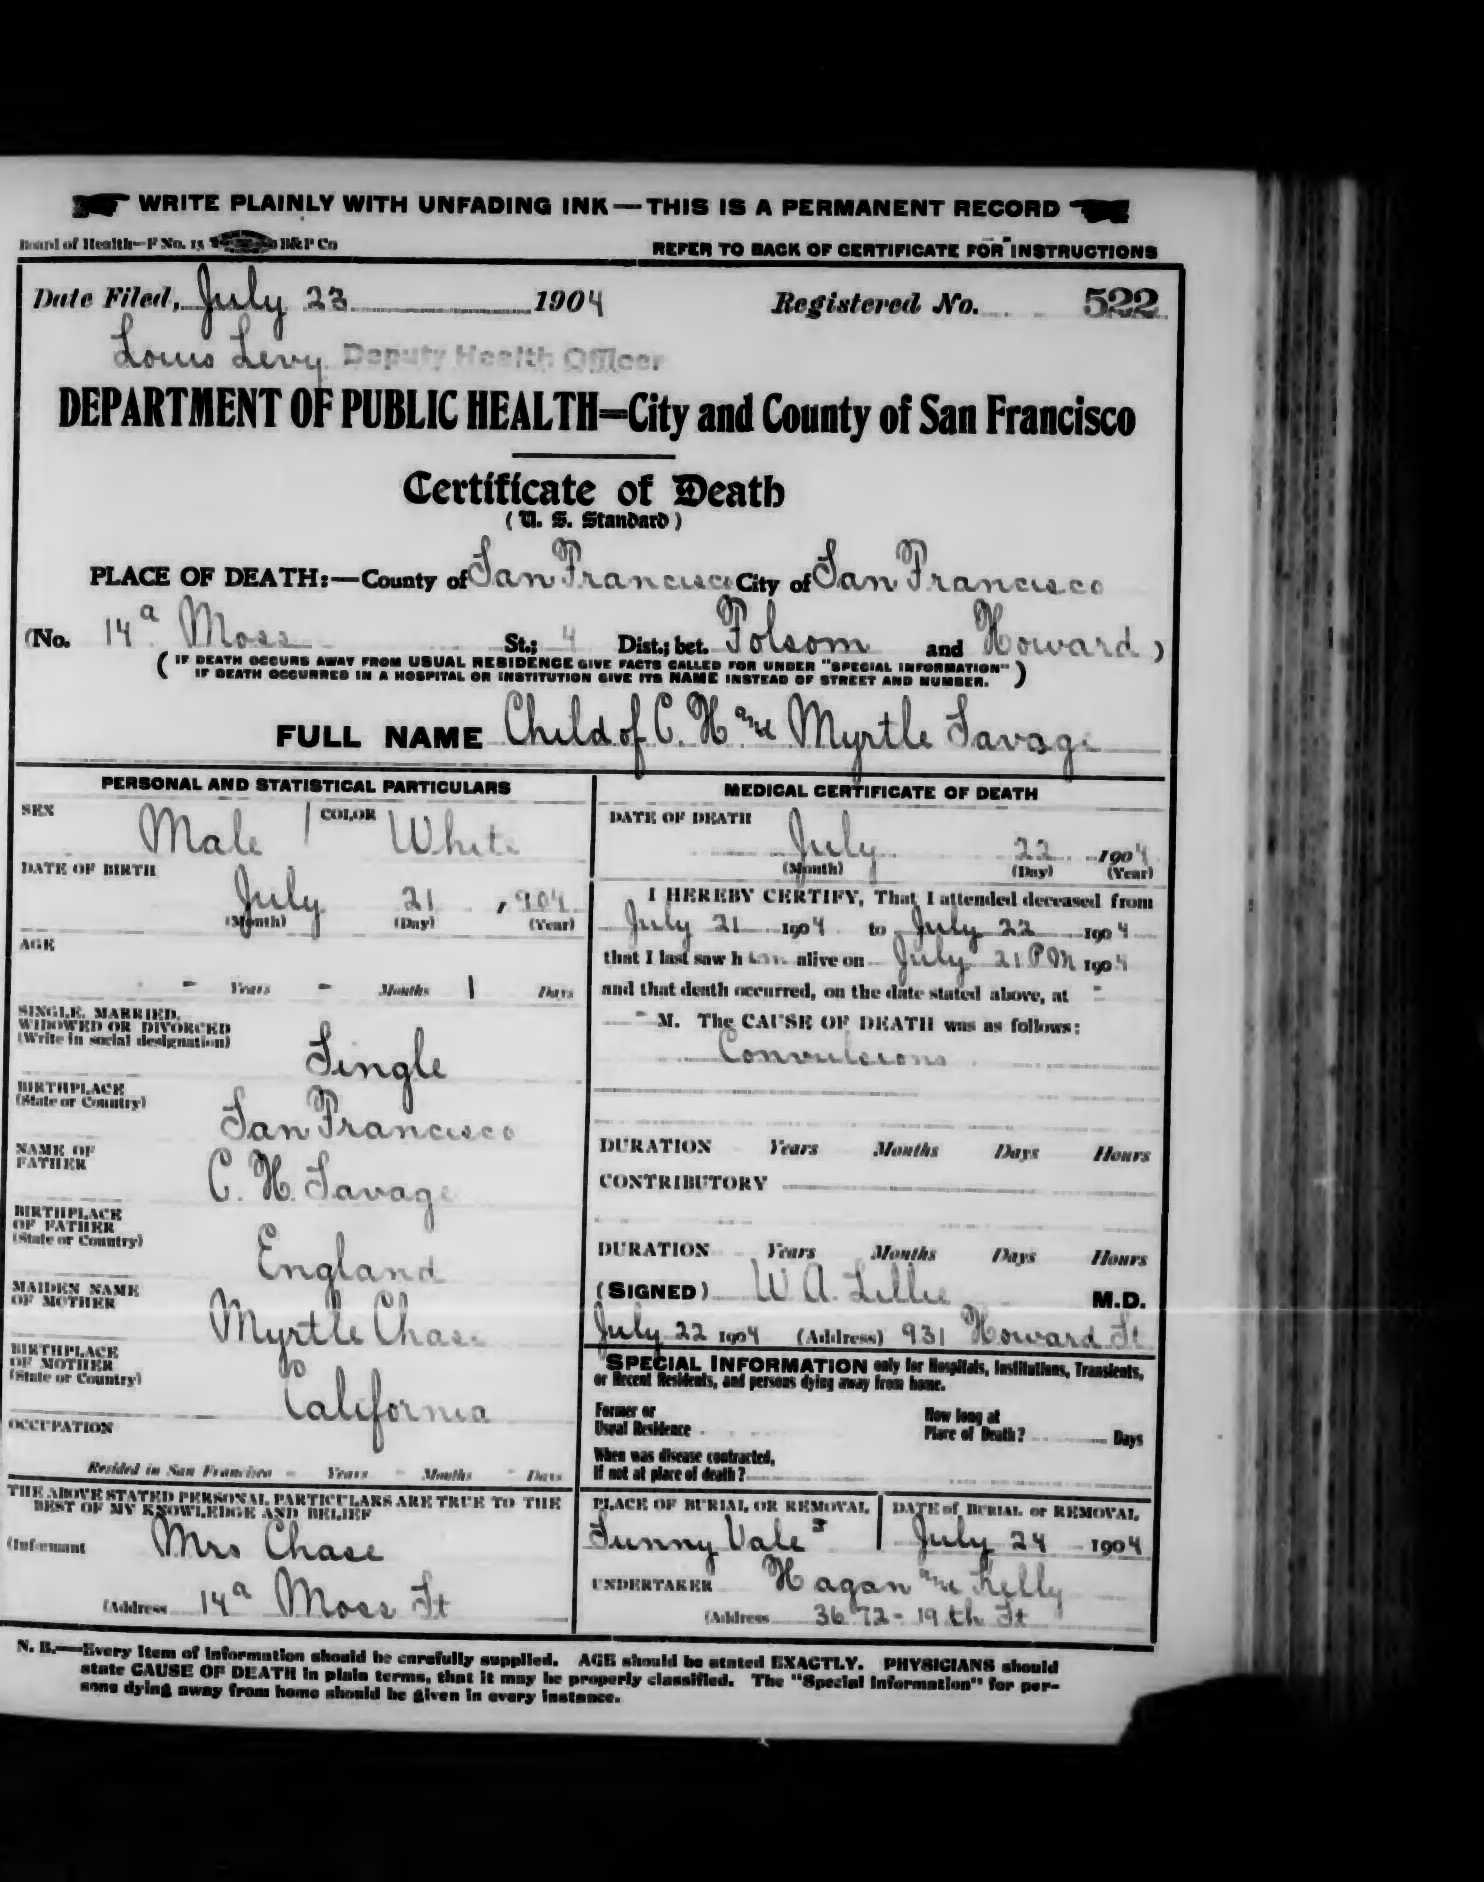 WRITE PLAINLY WITH UNFADING INK—THIS IS A PERMANENT RECORD
Board of Health—F No. 15 B&P Co
REFER TO BACK OF CERTIFICATE FOR INSTRUCTIONS
Date Filed, July 23 1904 Registered No. 522
Louis Levy Deputy Health Officer
DEPARTMENT OF PUBLIC HEALTH=City and County of San Francisco
Certificate of Death
(U. S. Standard)
PLACE OF DEATH:—County of San Francisco City of San Francisco
(No. 14a Moss St.; 4 Dist.; bet. Folsom and Howard)
(IF DEATH OCCURS AWAY FROM USUAL RESIDENCE GIVE FACTS CALLED FOR UNDER "SPECIAL INFORMATION"
IF DEATH OCCURRED IN A HOSPITAL OR INSTITUTION GIVE ITS NAME INSTEAD OF STREET AND NUMBER.)
FULL NAME Child of C. H and Myrtle Savage
PERSONAL AND STATISTICAL PARTICULARS
SEX Male COLOR White
DATE OF BIRTH
July 21, 904
(Month) (Day) (Year)
AGE
- Years - Months 1 Days
SINGLE, MARRIED,
WIDOWED OR DIVORCED
(Write in social designation)
Single
BIRTHPLACE
(State or Country)
San Francisco
NAME OF
FATHER
C. H. Savage
BIRTHPLACE
OF FATHER
(State or Country)
England
MAIDEN NAME
OF MOTHER
Myrtle Chase
BIRTHPLACE
OF MOTHER
(State or Country)
California
OCCUPATION
Resided in San Francisco - Years - Months - Days
THE ABOVE STATED PERSONAL PARTICULARS ARE TRUE TO THE
BEST OF MY KNOWLEDGE AND BELIEF
(Informant Mrs Chase
(Address 14a Moss St
MEDICAL CERTIFICATE OF DEATH
DATE OF DEATH
July 22 1904
(Month) (Day) (Year)
I HEREBY CERTIFY, That I attended deceased from
July 21 1904 to July 22 1904
that I last saw h im alive on July 21 PM 1904
and that death occurred, on the date stated above, at -
- M. The CAUSE OF DEATH was as follows:
Convulsions
DURATION Years Months Days Hours
CONTRIBUTORY
DURATION Years Months Days Hours
(SIGNED) W A. Lillie M.D.
July 22 1904 (Address) 931 Howard St
SPECIAL INFORMATION only for Hospitals, Institutions, Transients,
or Recent Residents, and persons dying away from home.
Former or
Usual Residence
How long at
Place of Death? Days
When was disease contracted,
If not at place of death?
PLACE OF BURIAL OR REMOVAL
Sunny Vale
DATE of BURIAL or REMOVAL
July 24 1904
UNDERTAKER Hagan and Kelly
(Address 3672-19th St
N. B.—Every item of information should be carefully supplied. AGE should be stated EXACTLY. PHYSICIANS should
state CAUSE OF DEATH in plain terms, that it may be properly classified. The "Special Information" for per-
sons dying away from home should be given in every instance.